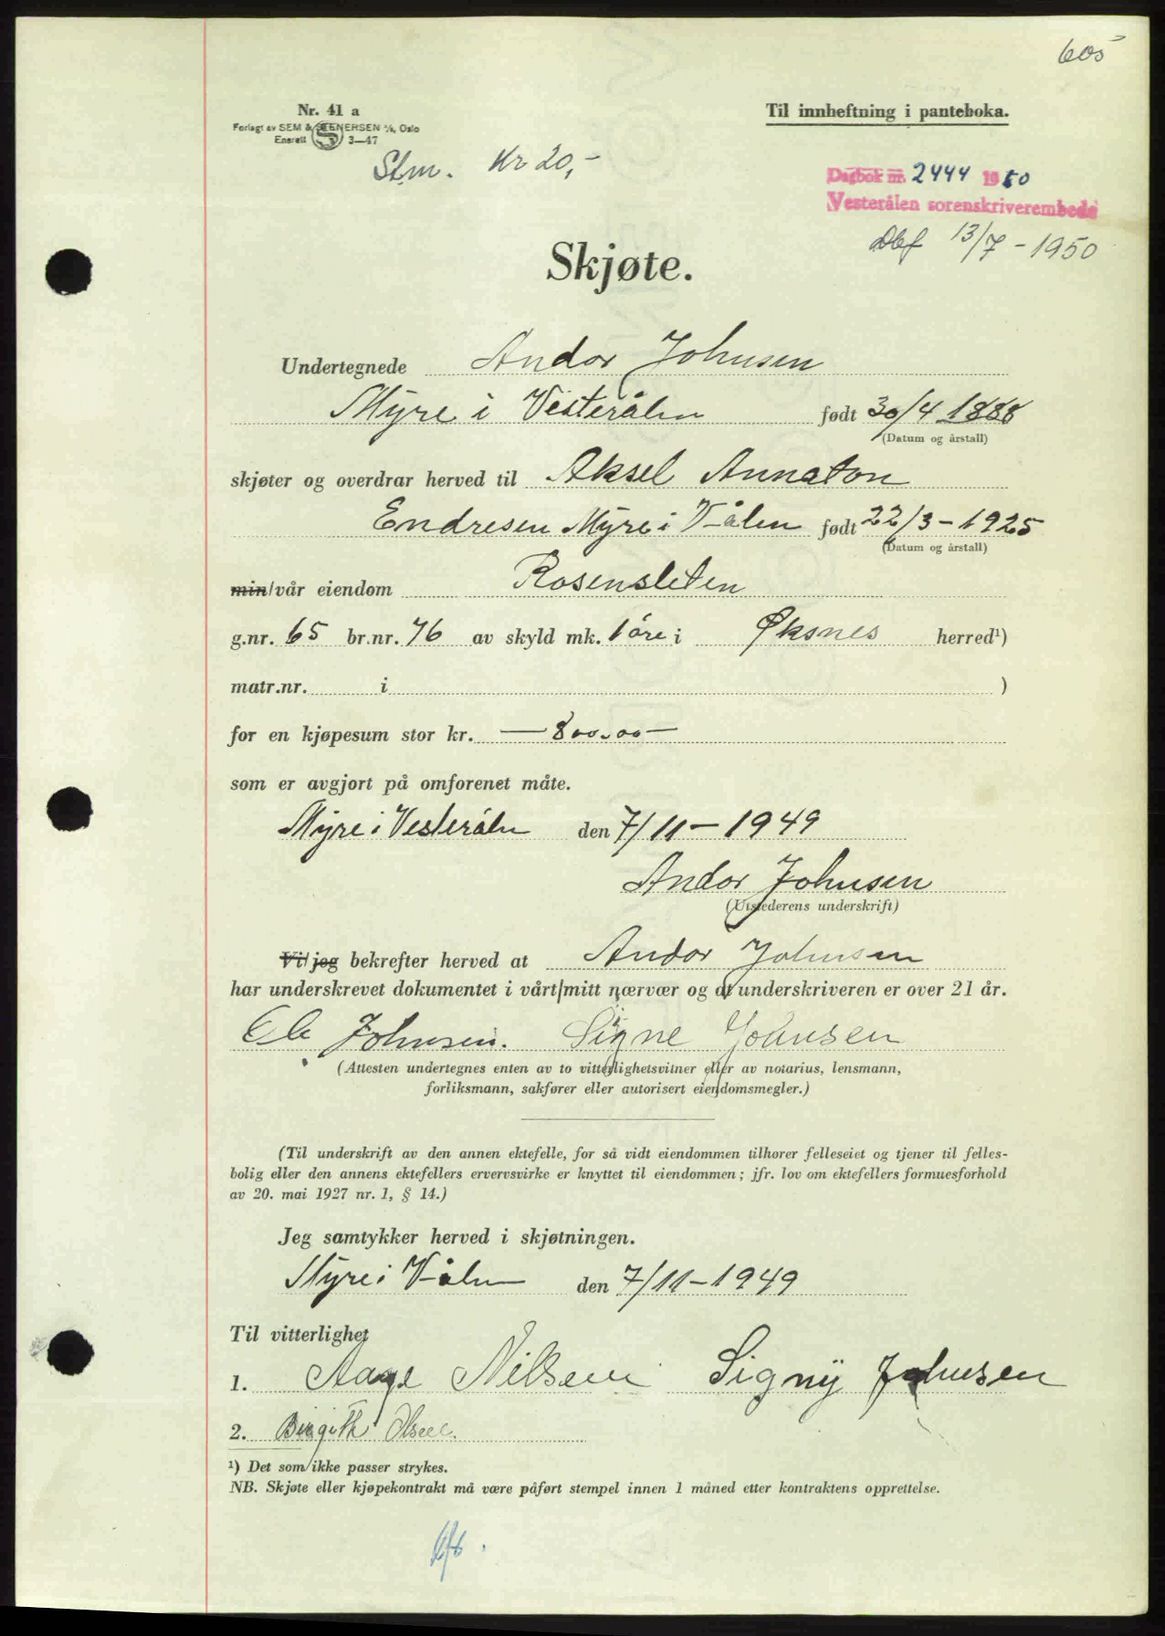 605
Nr. 41 a
Til innheftning i panteboka.
Forlagt av SEM & STENERSEN A/S, Oslo
Enerett 3—47
Stm. Kr 20,-
Dagbok nr. 2444 1950
Vesterålen sorenskriverembede
Dbf 13/7 - 1950
Skjøte.
Undertegnede Andor Johnsen
Myre i Vesterålen født 30/4 1888
(Datum og årstall)
skjøter og overdrar herved til Aksel Annaton
Endresen Myre i V-ålen født 22/3 - 1925
(Datum og årstall)
min/vår eiendom Rosensleten
g.nr. 65 br.nr. 76 av skyld mk. 1 øre i Øksnes herred¹)
matr.nr. i )
for en kjøpesum stor kr. — 800.00 —
som er avgjort på omforenet måte.
Myre i Vesterålen den 7/11 - 1949
Andor Johnsen
(Utstederens underskrift)
Vi/jeg bekrefter herved at Andor Johnsen
har underskrevet dokumentet i vårt/mitt nærvær og at underskriveren er over 21 år.
Johnsen. Signe Johnsen
(Attesten undertegnes enten av to vitterlighetsvitner eller av notarius, lensmann,
forliksmann, sakfører eller autorisert eiendomsmegler.)
(Til underskrift av den annen ektefelle, for så vidt eiendommen tilhører felleseiet og tjener til felles-
bolig eller den annens ektefellers ervervsvirke er knyttet til eiendommen; jfr. lov om ektefellers formuesforhold
av 20. mai 1927 nr. 1, § 14.)
Jeg samtykker herved i skjøtningen.
Myre i V-ålen den 7/11 - 1949
Til vitterlighet
1. Aage Nilsen Signy Johnsen
2. Birgith Olsen.
¹) Det som ikke passer strykes.
NB. Skjøte eller kjøpekontrakt må være påført stempel innen 1 måned etter kontraktens opprettelse.